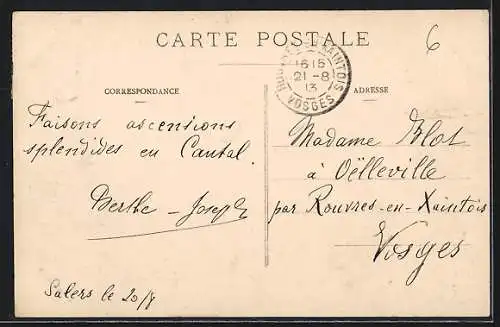 CARTE POSTALE
6
ROUVRES-EN-XAINTOIS
16 15
21 -8
13
VOSGES
CORRESPONDANCE
ADRESSE
Faisons ascensions
splendides en Cantal.
Berthe - Joseph
Salers le 20/8
Madame Blot
à Oëlleville
par Rouvres-en-Xaintois
Vosges